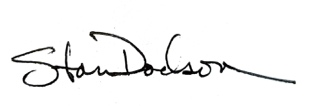 Stan Dodson